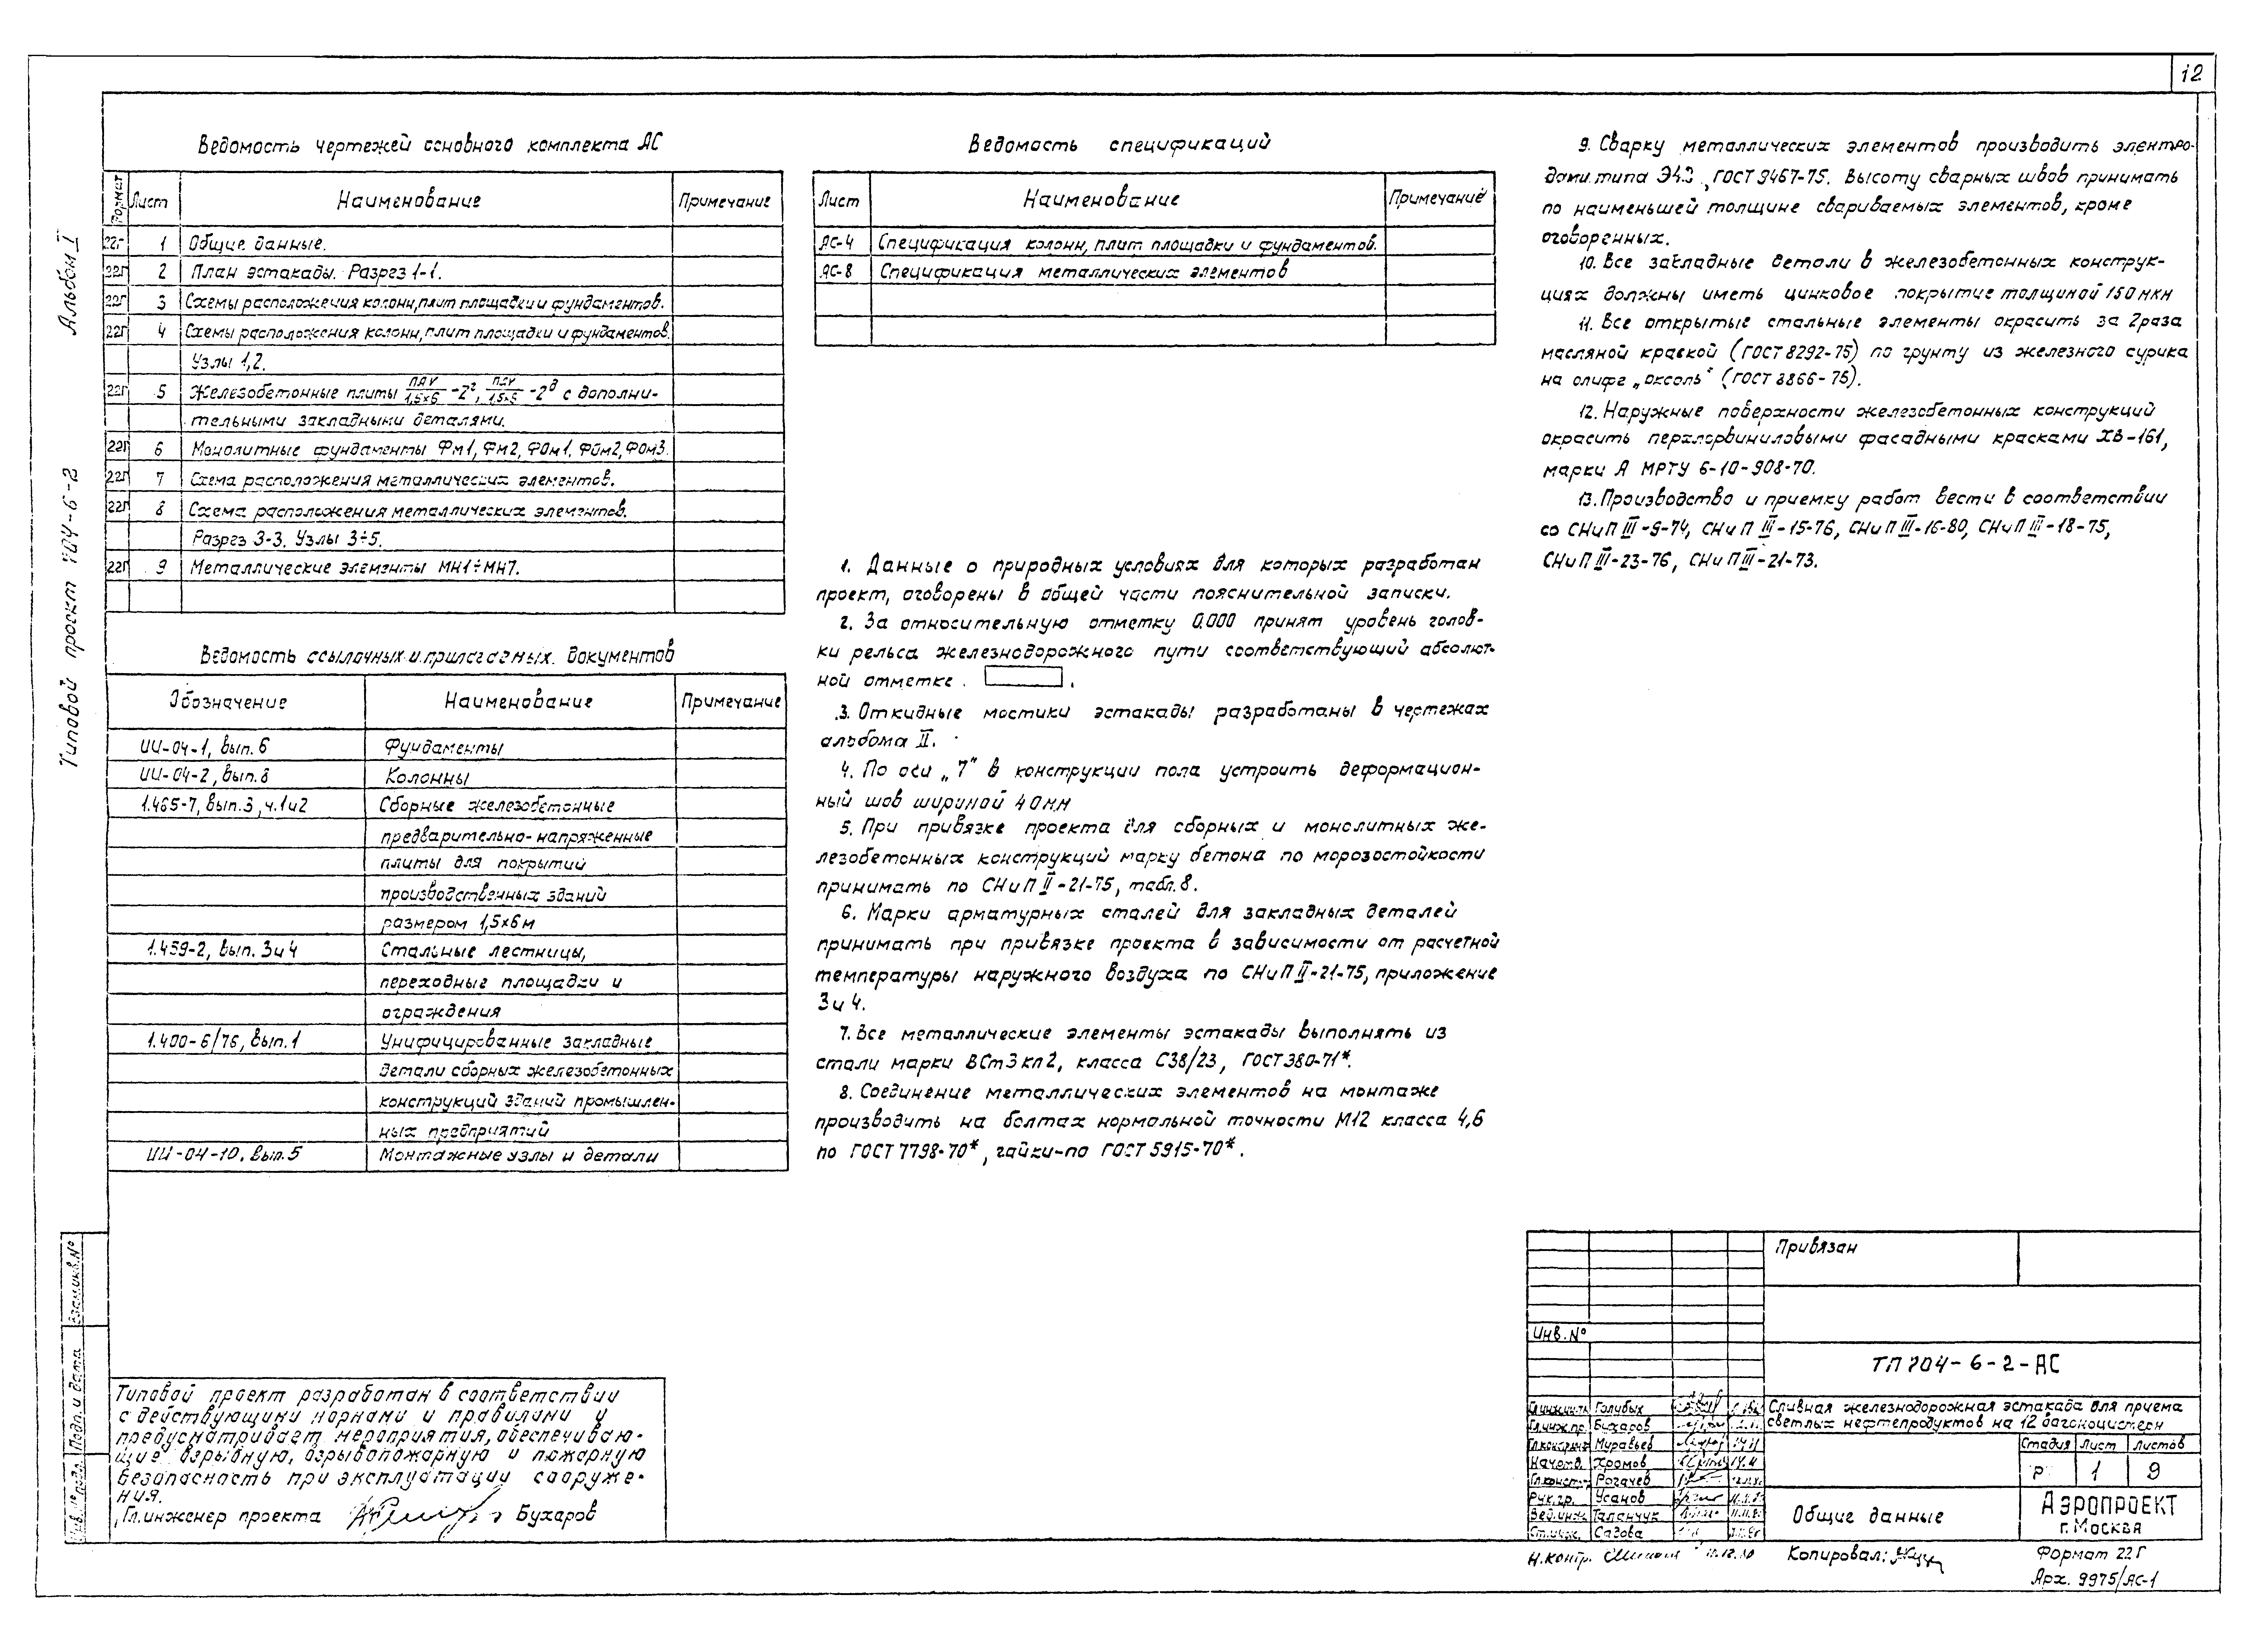 12
Альбом I
Типовой проект 704-6-2
Ведомость чертежей основного комплекта АС
Формат Лист Наименование Примечание
22Г 1 Общие данные.
22Г 2 План эстакады. Разрез 1-1.
22Г 3 Схемы расположения колонн, плит площадки и фундаментов.
22Г 4 Схемы расположения колонн, плит площадки и фундаментов.
Узлы 1,2.
22Г 5 Железобетонные плиты с дополни-
тельными закладными деталями.
22Г 6 Монолитные фундаменты Фм1, Фм2, ФОм1, ФОм2, ФОм3.
22Г 7 Схема расположения металлических элементов.
22Г 8 Схема расположения металлических элементов.
Разрез 3-3. Узлы 3÷5.
22Г 9 Металлические элементы МН1÷МН7.
Ведомость ссылочных и прилагаемых документов
Обозначение Наименование Примечание
ИИ-04-1, вып. 6 Фундаменты
ИИ-04-2, вып. 8 Колонны
1.465-7, вып. 3, ч. 1и2 Сборные железобетонные
предварительно-напряженные
плиты для покрытий
производственных зданий
размером 1,5х6м
1.459-2, вып. 3и4 Стальные лестницы,
переходные площадки и
ограждения
1.400-6/76, вып. 1 Унифицированные закладные
детали сборных железобетонных
конструкций зданий промышлен-
ных предприятий
ИИ-04-10, вып. 5 Монтажные узлы и детали
Ведомость спецификаций
Лист Наименование Примечание
АС-4 Спецификация колонн, плит площадки и фундаментов.
АС-8 Спецификация металлических элементов
1. Данные о природных условиях для которых разработан
проект, оговорены в общей части пояснительной записки.
2. За относительную отметку 0.000 принят уровень голов-
ки рельса железнодорожного пути соответствующий абсолют-
ной отметке .
3. Откидные мостики эстакады разработаны в чертежах
альбома II.
4. По оси „7" в конструкции пола устроить деформацион-
ный шов шириной 40мм
5. При привязке проекта для сборных и монолитных же-
лезобетонных конструкций марку бетона по морозостойкости
принимать по СНиП II-21-75, табл. 8.
6. Марки арматурных сталей для закладных деталей
принимать при привязке проекта в зависимости от расчетной
температуры наружного воздуха по СНиП II-21-75, приложение
3и4.
7. Все металлические элементы эстакады выполнять из
стали марки ВСт3кп2, класса С38/23, ГОСТ 380-71*.
8. Соединение металлических элементов на монтаже
производить на болтах нормальной точности М12 класса 4,6
по ГОСТ 7798-70*, гайки-по ГОСТ 5915-70*.
9. Сварку металлических элементов производить электро-
дами типа Э42, ГОСТ 9467-75. Высоту сварных швов принимать
по наименьшей толщине свариваемых элементов, кроме
оговоренных.
10. Все закладные детали в железобетонных конструк-
циях должны иметь цинковое покрытие толщиной 150мкм
11. Все открытые стальные элементы окрасить за 2раза
масляной краской (ГОСТ 8292-75) по грунту из железного сурика
на олифе „оксоль" (ГОСТ 8866-75).
12. Наружные поверхности железобетонных конструкций
окрасить перхлорвиниловыми фасадными красками ХВ-161,
марки А МРТУ 6-10-908-70.
13. Производство и приемку работ вести в соответствии
со СНиП III-9-74, СНиП III-15-76, СНиП III-16-80, СНиП III-18-75,
СНиП III-23-76, СНиП III-21-73.
Взам.инв.№
Подп. и дата
Инв.№подл.
Типовой проект разработан в соответствии
с действующими нормами и правилами и
предусматривает мероприятия, обеспечиваю-
щие взрывную, взрывопожарную и пожарную
безопасность при эксплуатации сооруже-
ния.
Гл.инженер проекта Бухаров
Привязан
Инв.№
ТП 704-6-2-АС
Гл.инж.ин. Голубых
Гл.инж.пр. Бухаров
Муравьев
Нач.отд. Хромов
Гл.констр. Рогачев
Рук.гр. Усанов
Вед.инж. Таланчук
Ст.инж. Садова
Сливная железнодорожная эстакада для приема
светлых нефтепродуктов на 12 вагоноцистерн
Стадия Лист Листов
Р 1 9
Общие данные
АЭРОПРОЕКТ
г. Москва
Н.контр.
Копировал:
Формат 22Г
Арх. 9975/АС-1